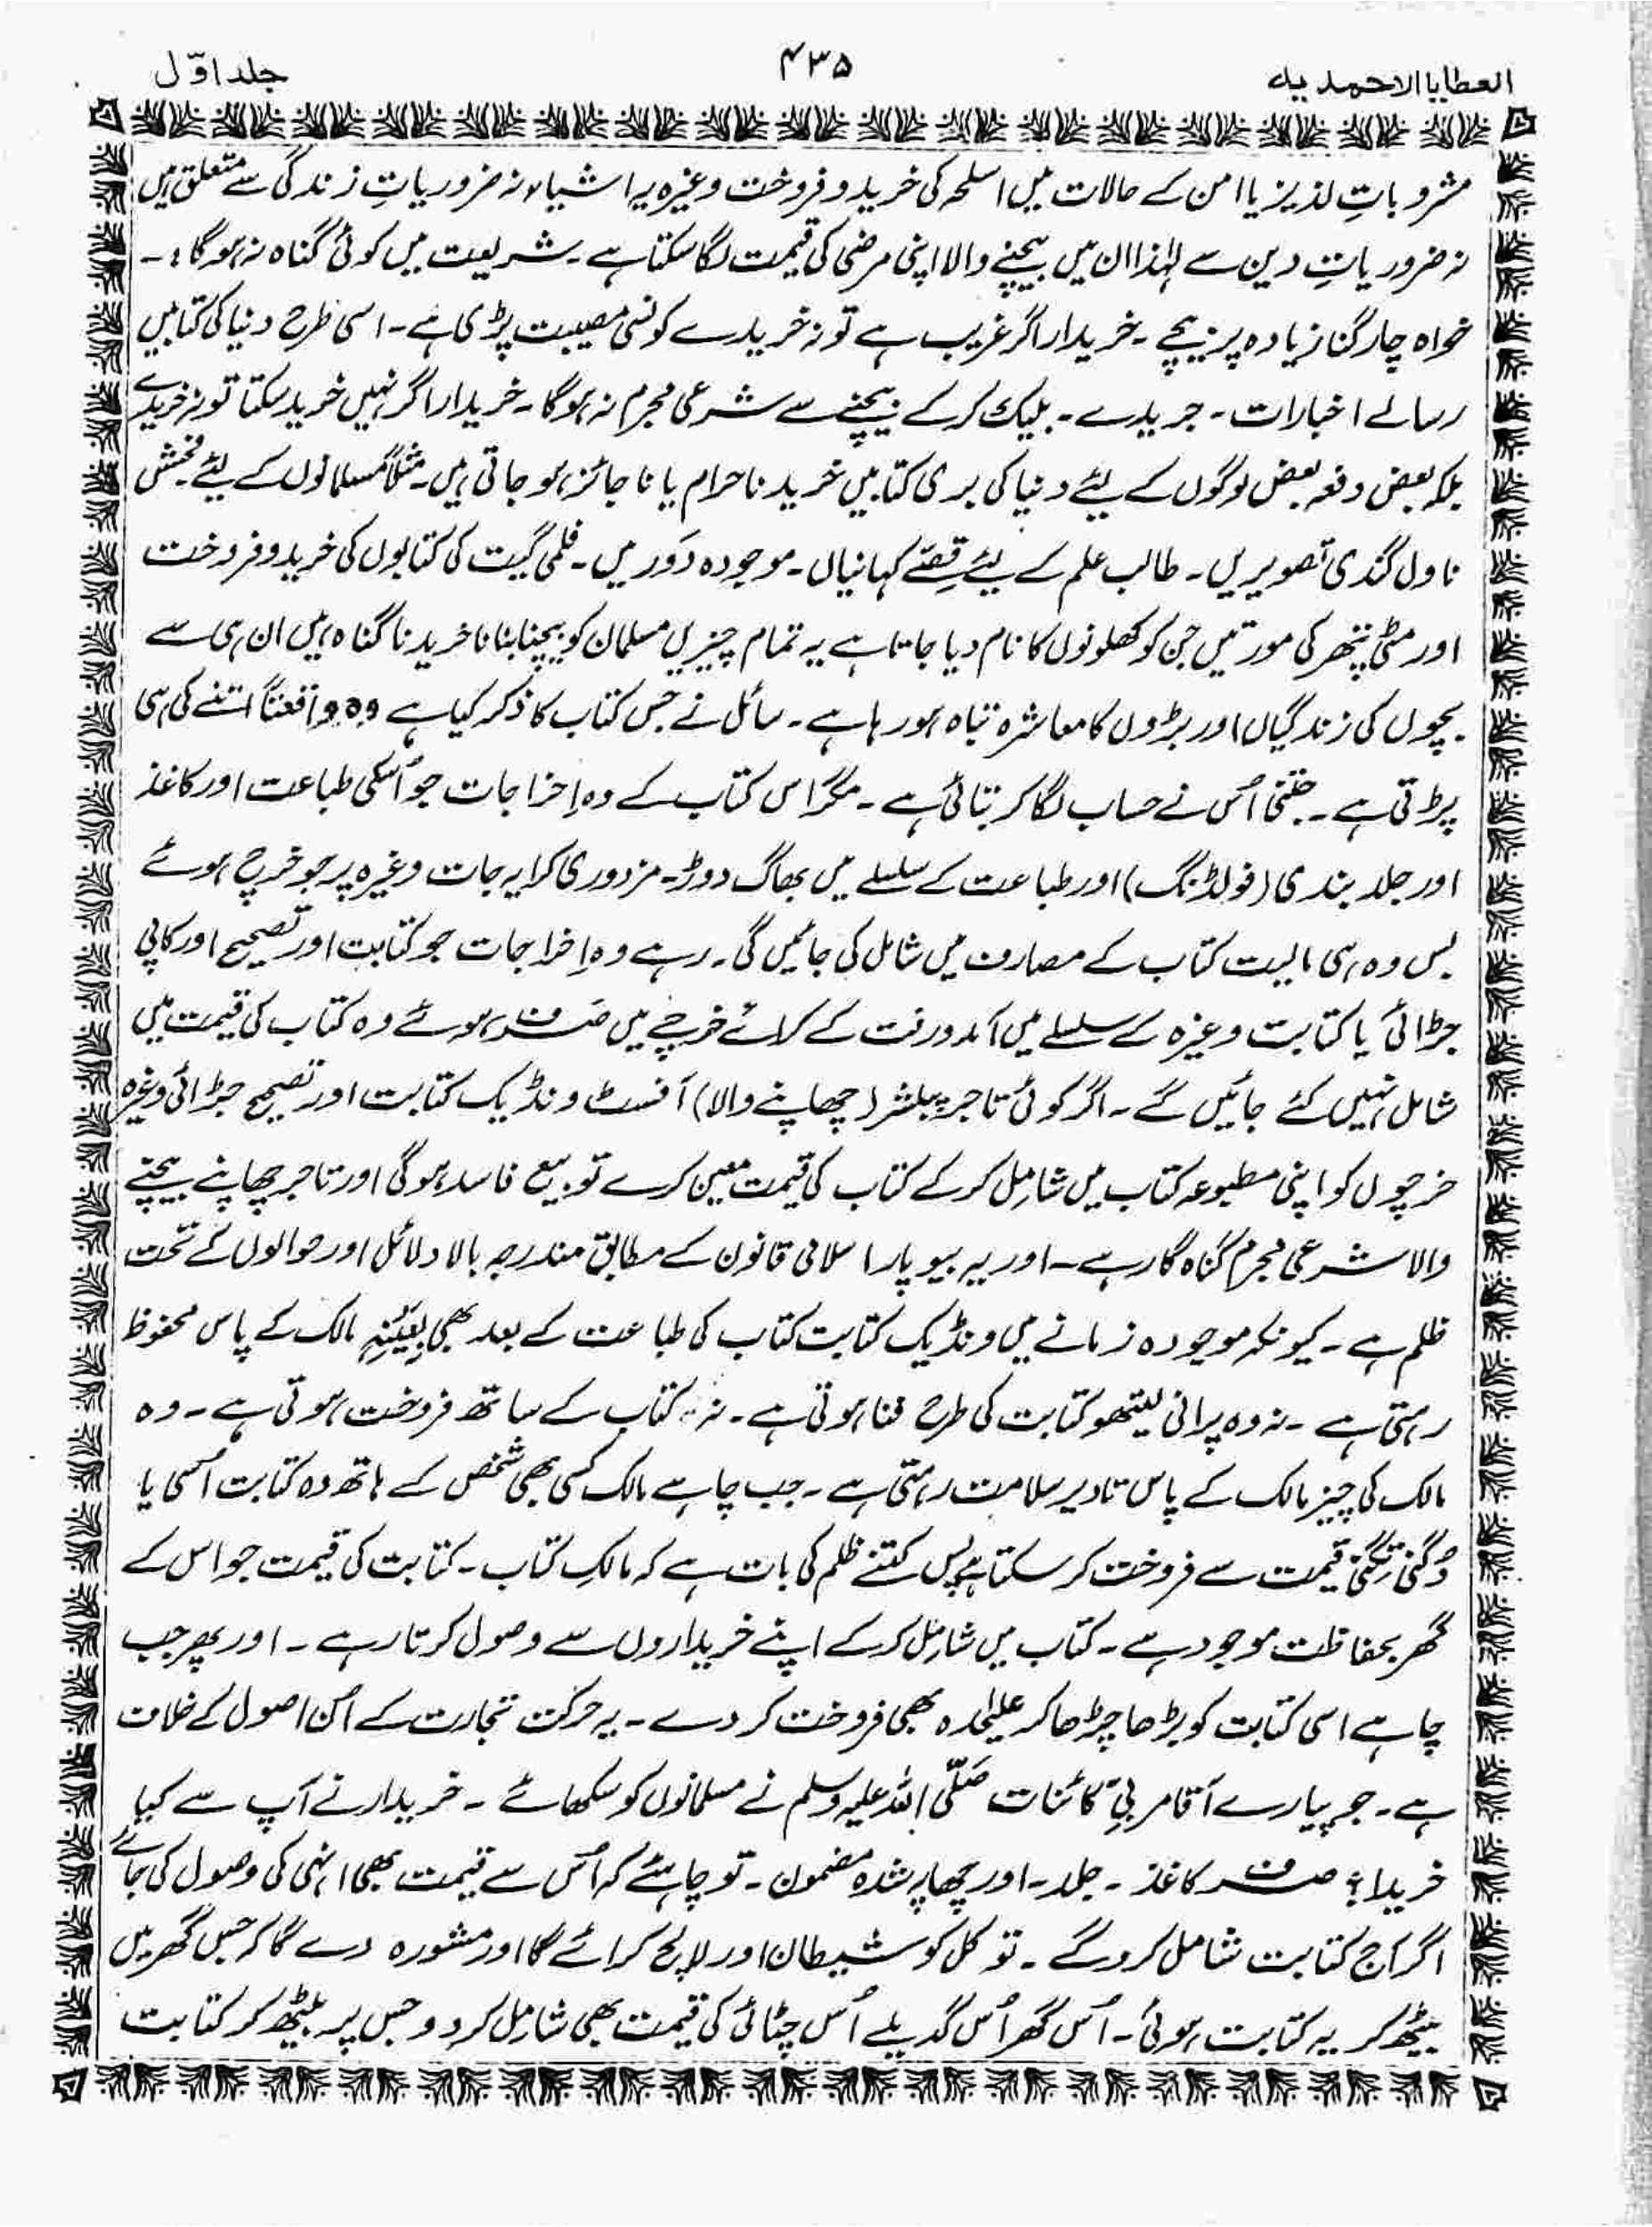 العطایا الاحمدیہ
۴۳۵
جلد اوّل
مشروباتِ لذیز یا امن کے حالات میں اسلحہ کی خرید و فروخت وغیرہ یہ اشیاء نہ ضروریاتِ زندگی سے متعلق ہیں
نہ ضروریاتِ دین سے لہٰذا ان میں بیچنے والا اپنی مرضی کی قیمت لگا سکتا ہے ۔ شریعت میں کوئی گناہ نہ ہوگا ؛ ۔
خواہ چار گنا زیادہ پر بیچے ۔ خریدار اگر غریب ہے تو نہ خریدے کونسی مصیبت پڑی ہے ۔ اسی طرح دنیا کی کتابیں
رسالے اخبارات ۔ جریدے ۔ بلیک کر کے بیچنے سے شرعی مجرم نہ ہوگا ۔ خریدار اگر نہیں خرید سکتا تو نہ خریدے
بلکہ بعض دفعہ بعض لوگوں کے لئے دنیا کی بری کتابیں خریدنا حرام یا نا جائز ہو جاتی ہیں ۔ مثلاً مسلمانوں کے لئے فحش
ناول گندی تصویریں ۔ طالب علم کے لئے قِصّے کہانیاں ۔ موجودہ دَور میں ۔ فلمی گیت کی کتابوں کی خرید و فروخت
اور مٹی پتھر کی مورتیں جن کو کھلونوں کا نام دیا جاتا ہے یہ تمام چیزیں مسلمان کو بیچنا بنانا خریدنا گناہ ہیں ان ہی سے
بچوں کی زندگیاں اور بڑوں کا معاشرہ تباہ ہو رہا ہے ۔ سائل نے جس کتاب کا ذکر کیا ہے وہ واقعتاً اتنے کی ہی
پڑتی ہے ۔ جتنی اُس نے حساب لگا کر بتائی ہے ۔ مگر اس کتاب کے وہ اِخراجات جو اُسکی طباعت اور کاغذ
اور جلد بندی (فولڈنگ) اور طباعت کے سلسلے میں بھاگ دوڑ ۔ مزدوری کرایہ جات وغیرہ پر جو خرچ ہوئے
بس وہ ہی مالیت کتاب کے مصارف میں شامل کی جائیں گی ۔ رہے وہ اِخراجات جو کتابت اور تصحیح اور کاپی
جڑائی یا کتابت وغیرہ کے سلسلے میں آمدورفت کے کرائے خرچے میں صَرف ہوئے وہ کتاب کی قیمت میں
شامل نہیں کئے جائیں گے ۔ اگر کوئی تاجر پبلشر (چھاپنے والا) آفسٹ ونڈیک کتابت اور تصحیح جڑائی وغیرہ
خرچوں کو اپنی مطبوعہ کتاب میں شامِل کر کے کتاب کی قیمت معین کرے تو بیع فاسد ہوگی اور تاجر چھاپنے بیچنے
والا شرعی مجرم گناہ گار ہے ۔ اور یہ بیوپار اسلامی قانون کے مطابق مندرجہ بالا دلائل اور حوالوں کے تحت
ظلم ہے ۔ کیونکہ موجودہ زمانے میں ونڈیک کتابت کتاب کی طباعت کے بعد بھی بِعَیْنِہٖ مالک کے پاس محفوظ
رہتی ہے ۔ نہ وہ پرانی لیتھو کتابت کی طرح فنا ہوتی ہے ۔ نہ کتاب کے ساتھ فروخت ہوتی ہے ۔ وہ
مالک کی چیز مالک کے پاس تا دیر سلامت رہتی ہے ۔ جب چاہے مالک کسی بھی شخص کے ہاتھ وہ کتابت اُسی یا
دُگنی تِگنی قیمت سے فروخت کر سکتا ہے پس کتنے ظلم کی بات ہے کہ مالکِ کتاب ۔ کتابت کی قیمت جو اس کے
گھر بحفاظت موجود ہے ۔ کتاب میں شامِل کر کے اپنے خریداروں سے وصول کرتا رہے ۔ اور پھر جب
چاہے اسی کتابت کو بڑھا چڑھا کر علیٰحدہ بھی فروخت کر دے ۔ یہ حرکت تجارت کے اُن اصول کے خلاف
ہے ۔ جو پیارے آقا مربیِّ کائنات صَلَّی اللہ علیہ وسلم نے مسلمانوں کو سکھائے ۔ خریدار نے آپ سے کیا
خریدا ؟ صرف کاغذ ۔ جلد ۔ اور چھاپہ شدہ مضمون ۔ تو چاہئے کہ اُس سے قیمت بھی انہی کی وصول کی جائے
اگر آج کتابت شامل کرو گے ۔ تو کل کو شیطان اور لالچ کرائے گا اور مشورہ دے گا کہ جس گھر میں
بیٹھ کر یہ کتابت ہوئی ۔ اُس گھر اُس گدیلے اُس چٹائی کی قیمت بھی شامِل کر دو جس پر بیٹھ کر کتابت